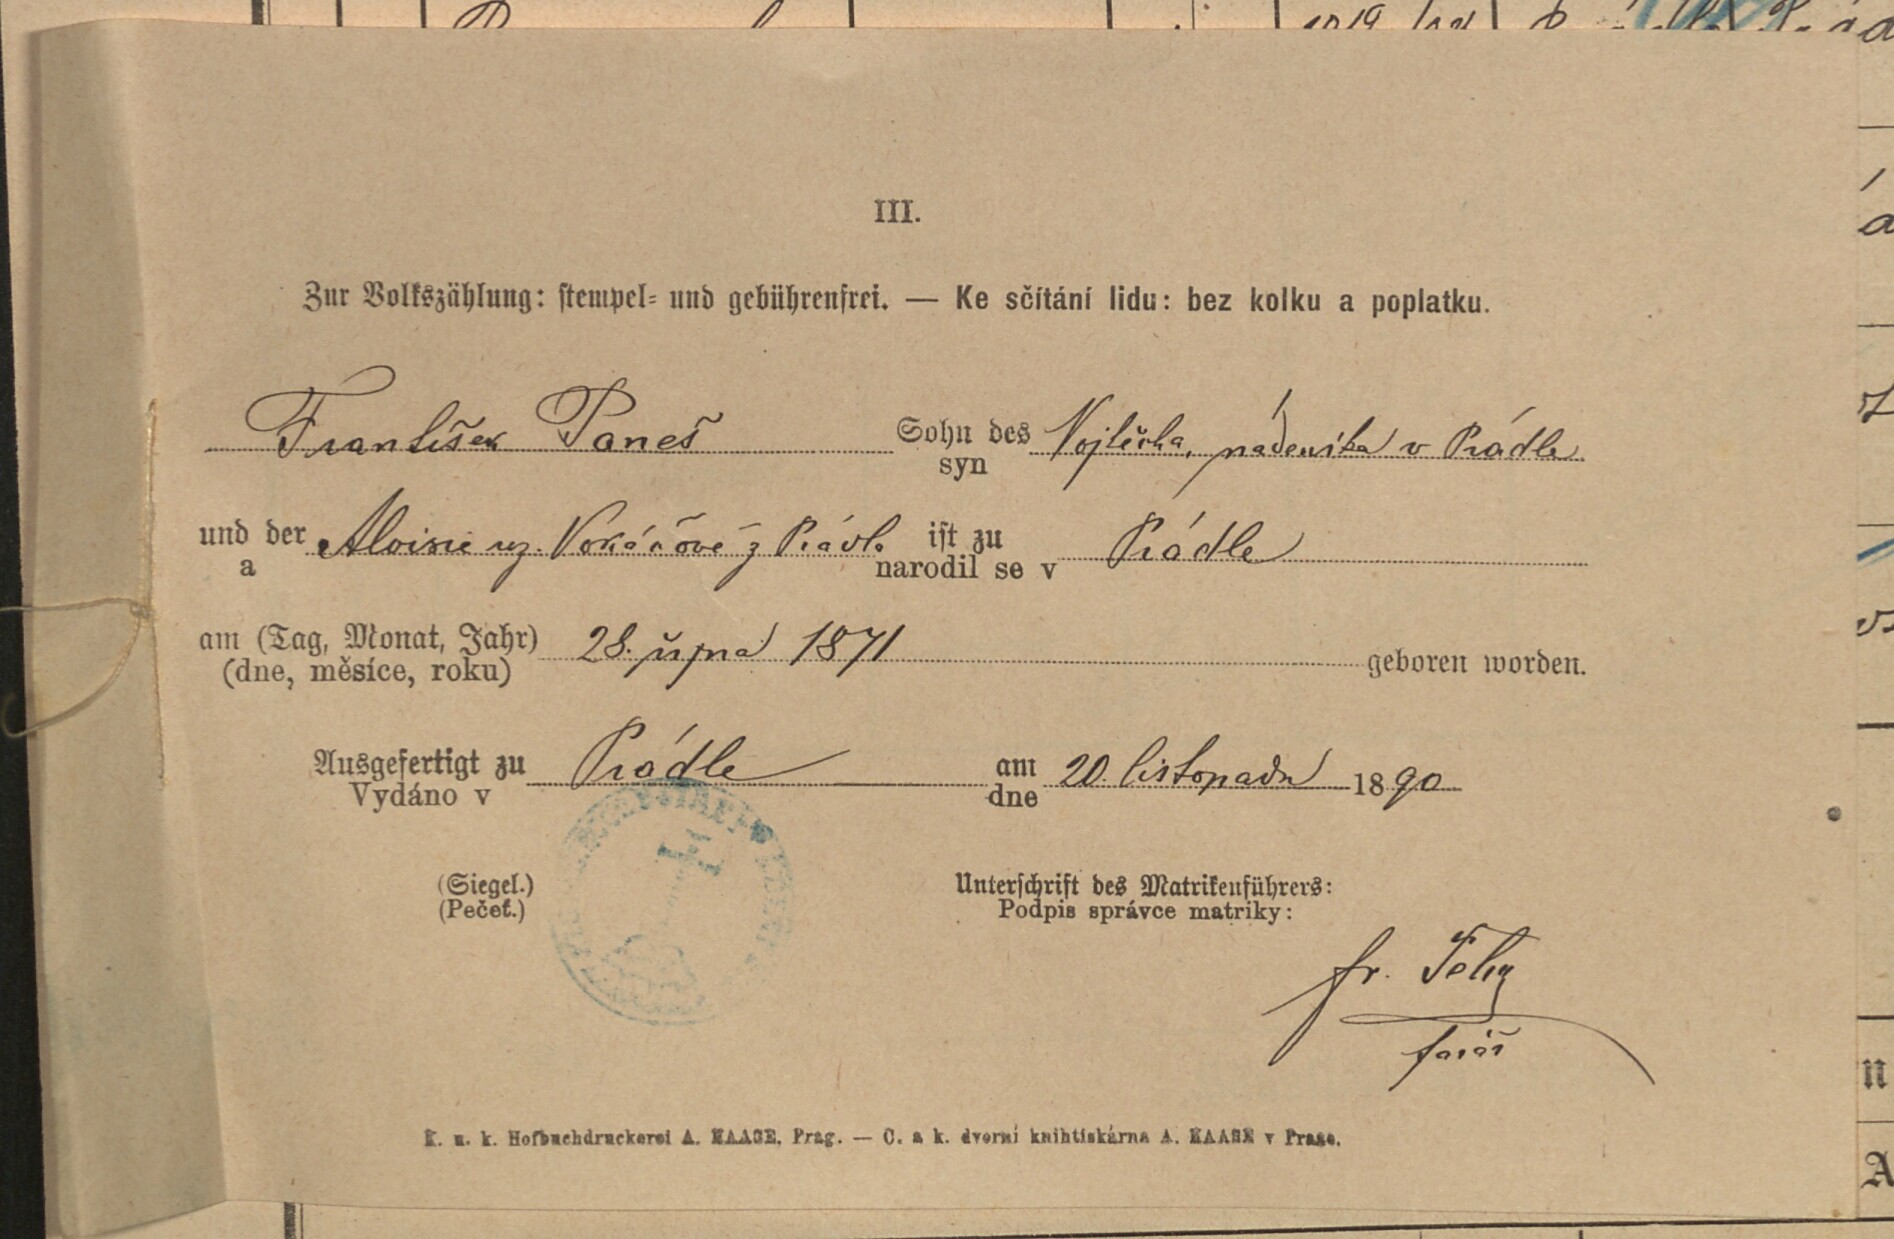 III.
Zur Volkszählung: stempel- und gebührenfrei. — Ke sčítání lidu: bez kolku a poplatku.
František Paneš Sohn des Vojtěcha, nádeníka v Prádle
syn
und der Aloisie roz. z Prádla ist zu Prádle
a narodil se v
am (Tag, Monat, Jahr) 28. října 1871 geboren worden.
(dne, měsíce, roku)
Ausgefertigt zu Prádle am 20. listopadu 1890
Vydáno v dne
(Siegel.) Unterschrift des Matrikenführers:
(Pečeť.) Podpis správce matriky:
fr.
farář
K. u. k. Hofbuchdruckerei A. HAASE, Prag. — C. a k. dvorní knihtiskárna A. HAASE v Praze.